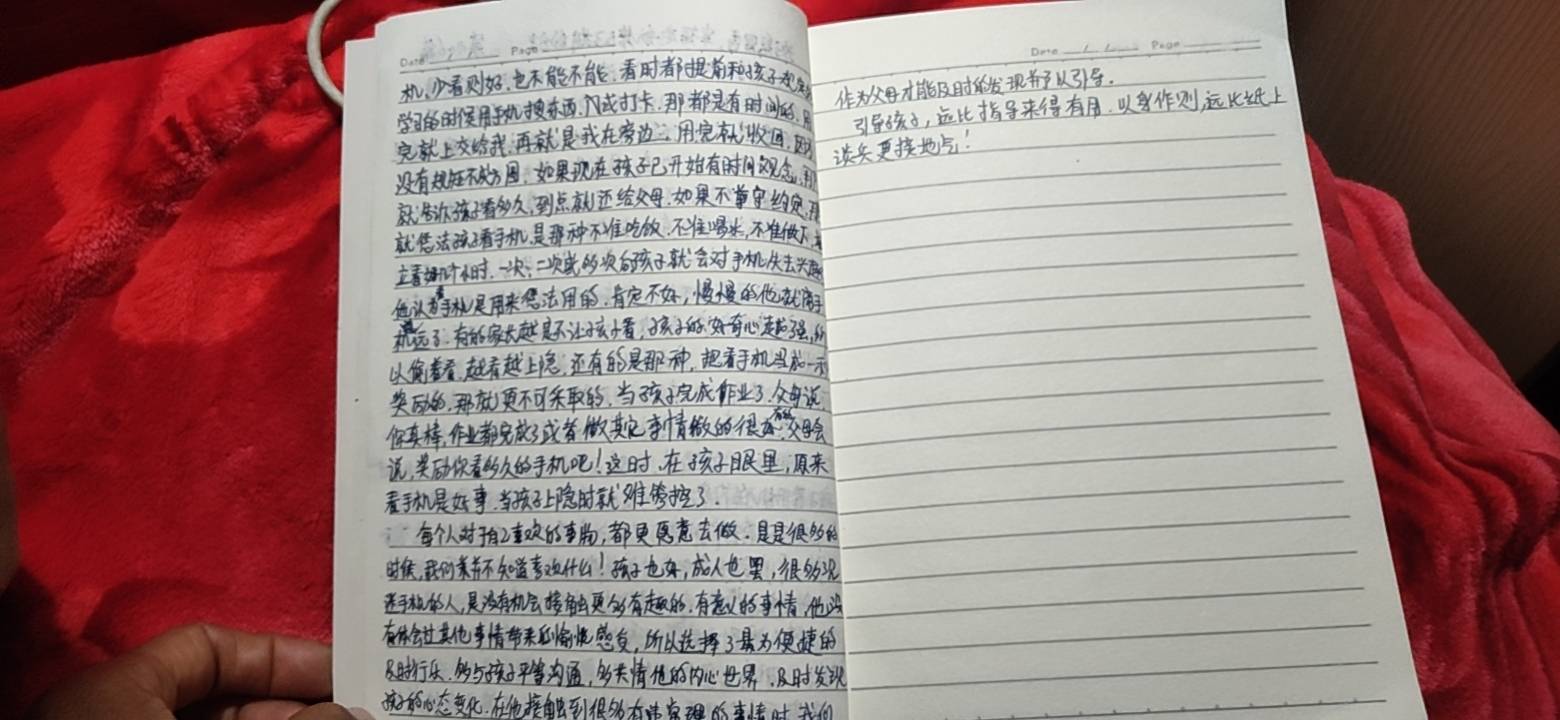 Date Page
机，少看则好，也不能不能，看时都提前和孩子
学习的时候用手机搜东西，或打卡，那都是有时间的，用
完就上交给我，再就是我在旁边，用完就收回，因为
没有规矩不成方圆，如果现在孩子已开始有时间观念，
就告诉孩子看多久，到点就还给父母，如果不遵守约定，
就惩法孩子看手机，是那种不准吃饭，不准喝水，不准做下，
立看好几个小时，一次，二次或多次后孩子就会对手机失去兴趣
他认为看手机是用来惩法用的，肯定不好，慢慢的他就离手
机远了，有的家长越是不让孩子看，孩子的好奇心越强，所
以偷着看，越看越上隐，还有的是那种，把看手机当成一示
奖励的，那就更不可采取的，当孩子完成作业了，父母说，
你真棒，作业都完成了或者做其它事情做的很好，有的父母会
说，奖励你看多久的手机吧！这时，在孩子眼里，原来
看手机是好事，当孩子上隐时就难管控了。
每个人对于自己喜欢的事物，都更愿意去做，是是很多的
时候，我们素并不知道喜欢什么！孩子也好，成人也罢，很多沉
迷手机的人，是没有机会接触更多有趣的，有意义的事情，他没
有体会过其他事情带来的愉悦感受，所以选择了最为便捷的
及时行乐，多与孩子平等沟通，多关情他的内心世界，及时发现
孩子的心态变化，在他接触到很多事情时，我们
Date / / Page
作为父母才能及时的发现并予以引导。
引导孩子，远比指导来得有用，以身作则，远比纸上
谈兵更接地气！